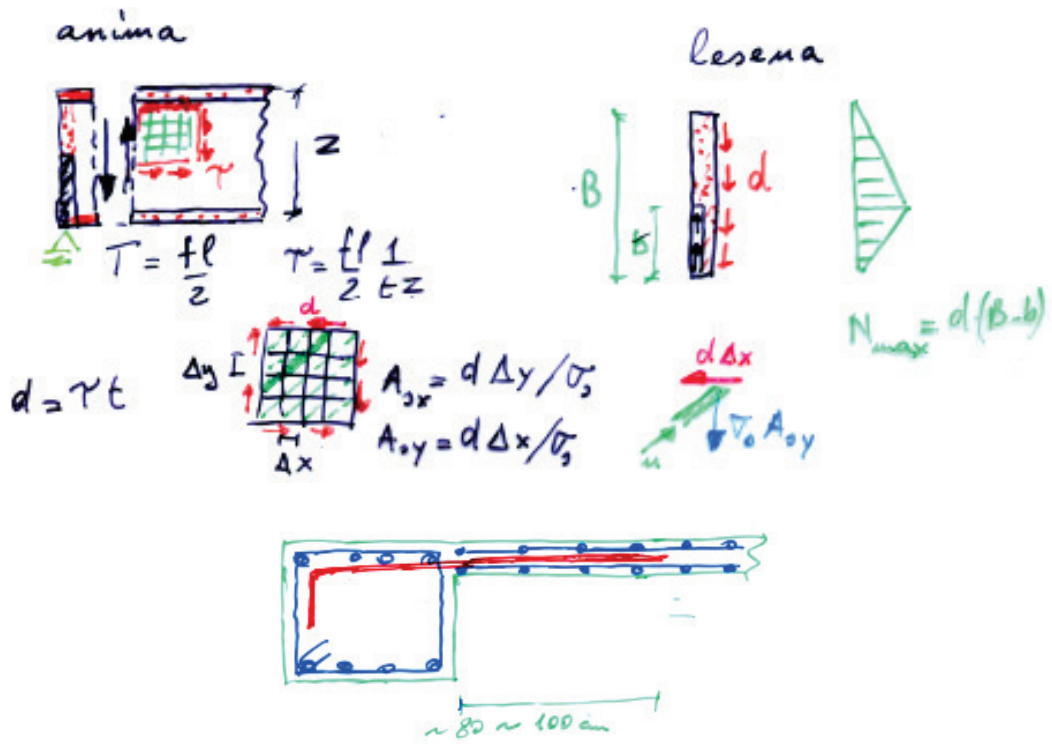 anima
lesena
z
τ
T = fl/2
τ = fl/2 1/tz
B
b
d
N max = d(B-b)
d
Δy
Δx
d = τt
A,x = d Δy/σ,
A,y = d Δx/σ,
d Δx
n
σ₀ A₀y
~ 80 ~ 100 cm